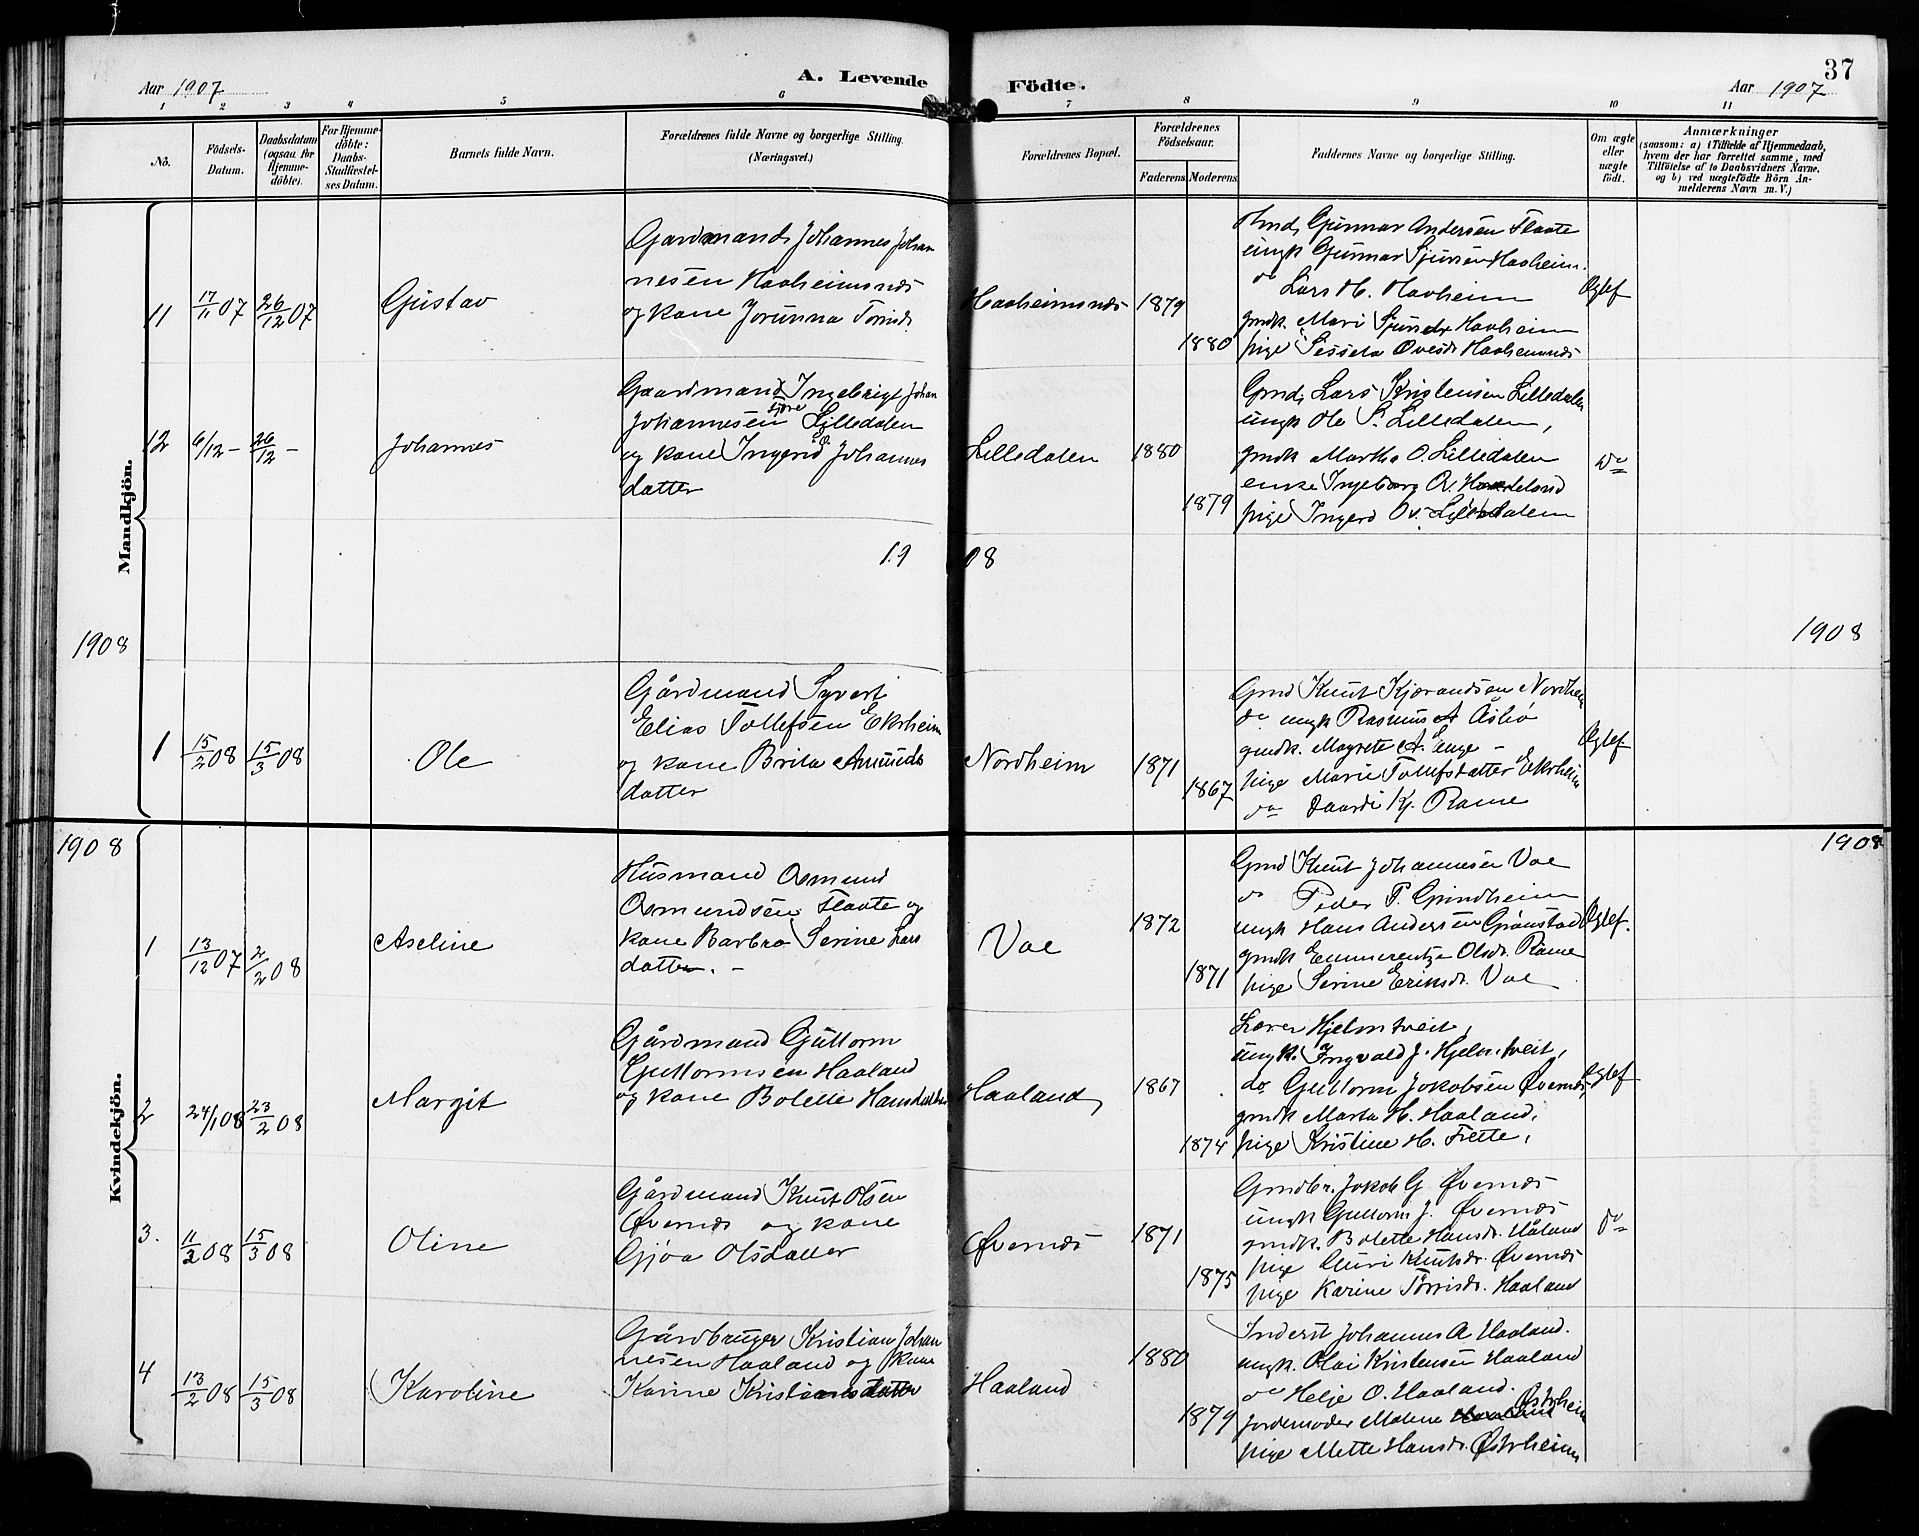 37
Aar 1907
A. Levende
Födte.
Aar 1907
1 2 3 4 5 6 7 8 9 10 11
No.
Födsels-
Datum.
Daabsdatum
(ogsaa for
Hjemme-
döbte).
For Hjemme-
döbte:
Daabs-
Stadfæstel-
ses Datum.
Barnets fulde Navn.
Forældrenes fulde Navne og borgerlige Stilling.
(Næringsvei.)
Forældrenes Bopæl.
Forældrenes
Födselsaar.
Faderens. Moderens.
Faddernes Navne og borgerlige Stilling.
Om ægte
eller
uægte
födt.
Anmærkninger
(saasom: a) i Tilfælde af Hjemmedaab,
hvem der har forrettet samme, med
Tilföielse af to Daabsvidners Navne.
og b) ved uægtefödte Börn An-
melderens Navn m. V.)
Mandkjön.
11
17/11 07
26/12 07
Gustav
Gardmand Johannes Johan
nesen Haaheimsnes
og kone Jorunna Tørrisd.
Haaheimsnes
1879
1880
Gmd. Gunnar Andersen Flaate
ungk Gunnar Sjursen Haaheim.
do Lars H. Haaheim
gmdk. Mari Sjursdr Haaheim
pige Sessela Ovesdr Haaheimsnes
Ægtef
12
6/12 -
26/12 -
Johannes
Gaardmand Ingebrigt Johan
Johannesen Lilledalen
og kone Ingerid Johannes
datter
Lilledalen
1880
1879
Gmd. Lars Kristensen Lilledalen
ungk Ole S. Lilledalen,
gmdk Martha O. Lilledalen
enke Ingeborg O. Handeland
pige Ingerd Ov. Lilledalen
do
19 08
1908
1908
1
15/2 08
15/3 08
Ole
Gårdmand Syvert
Elias Tollefsen Ekrheim
og kone Brita Amunds
datter
Nordheim
1871
1867
Gmd Knut Kjærandsen Nordheim
do ungk Rasmus A Asbø
gmdk. Magrete A. Enge -
pige Marie Tollefsdatter Ekrheim
do Kj. Rame
Ægtef
Kvindekjön.
1908
1908
1
13/12 07
2/2 08
Aseline
Husmand Osmund
Osmundsen Flaate og
kone Barbro Serine Lars
datter. -
Vae
1872
1871
Gmd Knut Johannesen Vae
do Peder P. Grindheim
ungk Hans Andersen Grønstad
gmdk Emmerentze Olsdr. Rame
pige Serine Eriksdr. Vae
Ægtef.
2
24/1 08
23/2 08
Margit
Gårdmand Guttorm
Guttormsen Haaland
og kone Bolette Hansdatter
Haaland
1867
1874
Lærer Hjelmtveit,
ungk. Ingvald J. Hjelmtveit,
do Guttorm Jokobsen Øvernæs
gmdk Marta H. Haaland,
pige Kristine H. Frette,
Ægtef
3.
11/2 08
15/3 08
Oline
Gårdmand Knut Olsen
Øvernæs og kone
Gjøa Olsdatter
Øvernæs
1871
1875
Gmdbr. Jokob G Øvernæs
ungk Guttorm J. Øvernæs
gmdk. Bolette Hansdr. Håland
pige Guri Knutsdr. Øvernæs
pige Karine Tørrisdr. Haaland
do
4
13/2 08
15/3 08
Karoline
Gårdbruger Kristian Johan
nesen Haaland og kone
Karine Kristiansdatter
Haaland
1880
1879
Inderst Johannes A Haaland.
ungk. Olai Kristensen Haaland
do Helje O. Haaland.
Jordemoder Malene Østrheim
pige Mette Hansdr. Østrheim